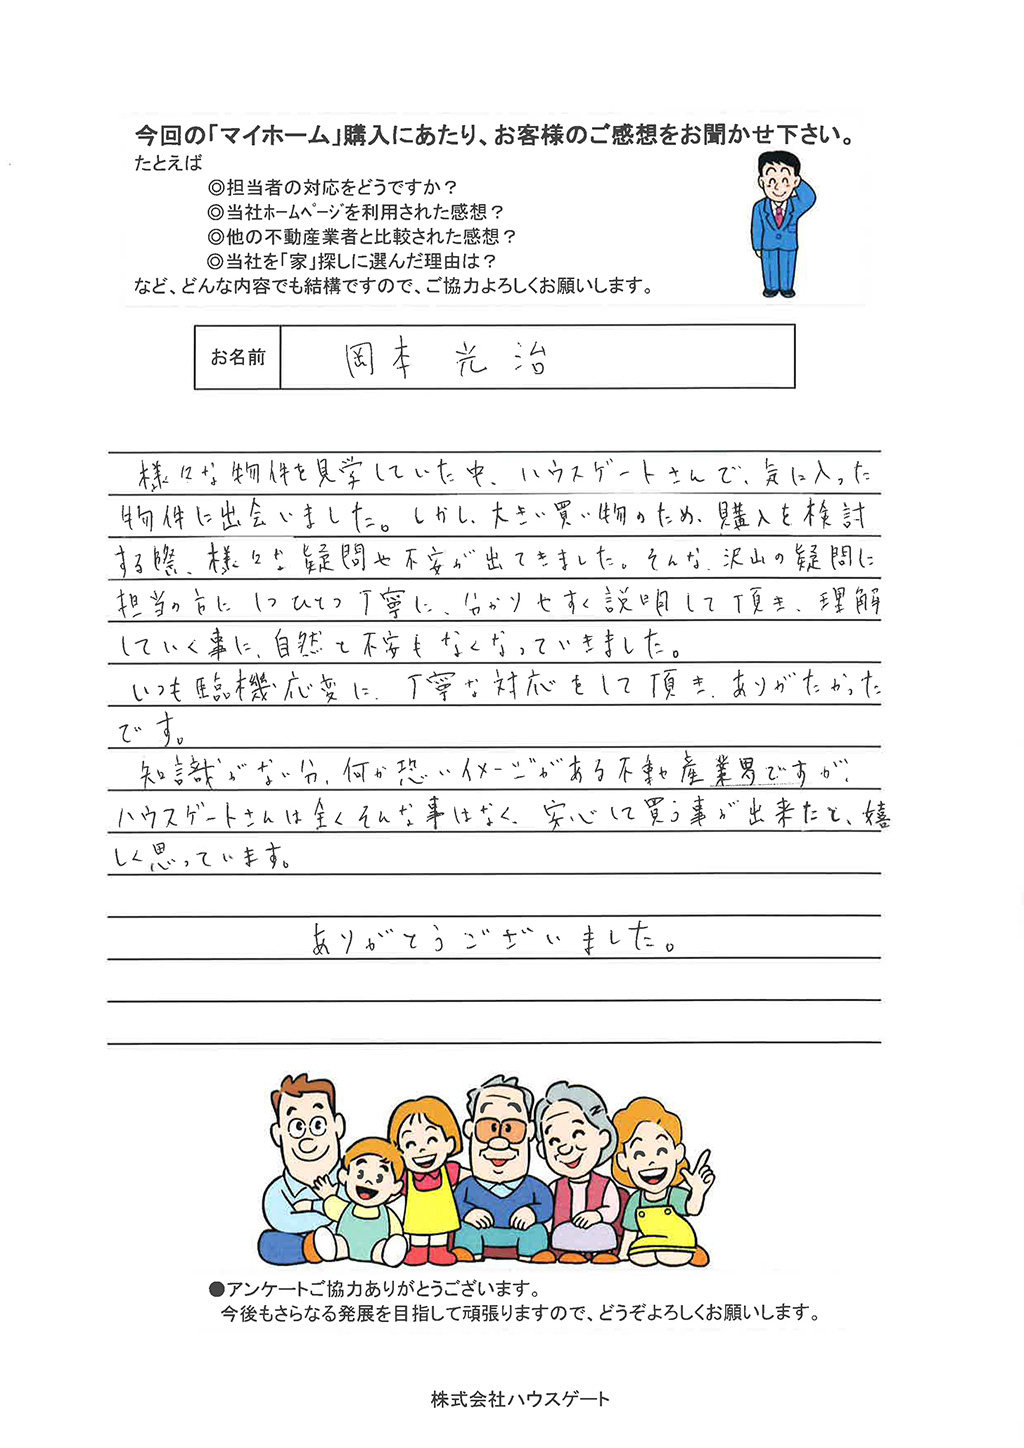 今回の「マイホーム」購入にあたり、お客様のご感想をお聞かせ下さい。
たとえば
◎担当者の対応をどうですか？
◎当社ﾎｰﾑﾍﾟｰｼﾞを利用された感想？
◎他の不動産業者と比較された感想？
◎当社を「家」探しに選んだ理由は？
など、どんな内容でも結構ですので、ご協力よろしくお願いします。
お名前 岡本 光治
様々な物件を見学していた中、ハウスゲートさんで、気に入った
物件に出会いました。しかし、大きい買い物のため、購入を検討
する際、様々な疑問や不安が出てきました。そんな、沢山の疑問に
担当の方に 1つひとつ丁寧に、分かりやすく説明して頂き、理解
していく事に、自然と不安もなくなっていきました。
いつも臨機応変に、丁寧な対応をして頂き、ありがたかった
です。
知識がない分、何か恐いイメージがある不動産業界ですが、
ハウスゲートさんは全くそんな事はなく、安心して買う事が出来たと、嬉
しく思っています。
ありがとうございました。
●アンケートご協力ありがとうございます。
今後もさらなる発展を目指して頑張りますので、どうぞよろしくお願いします。
株式会社ハウスゲート